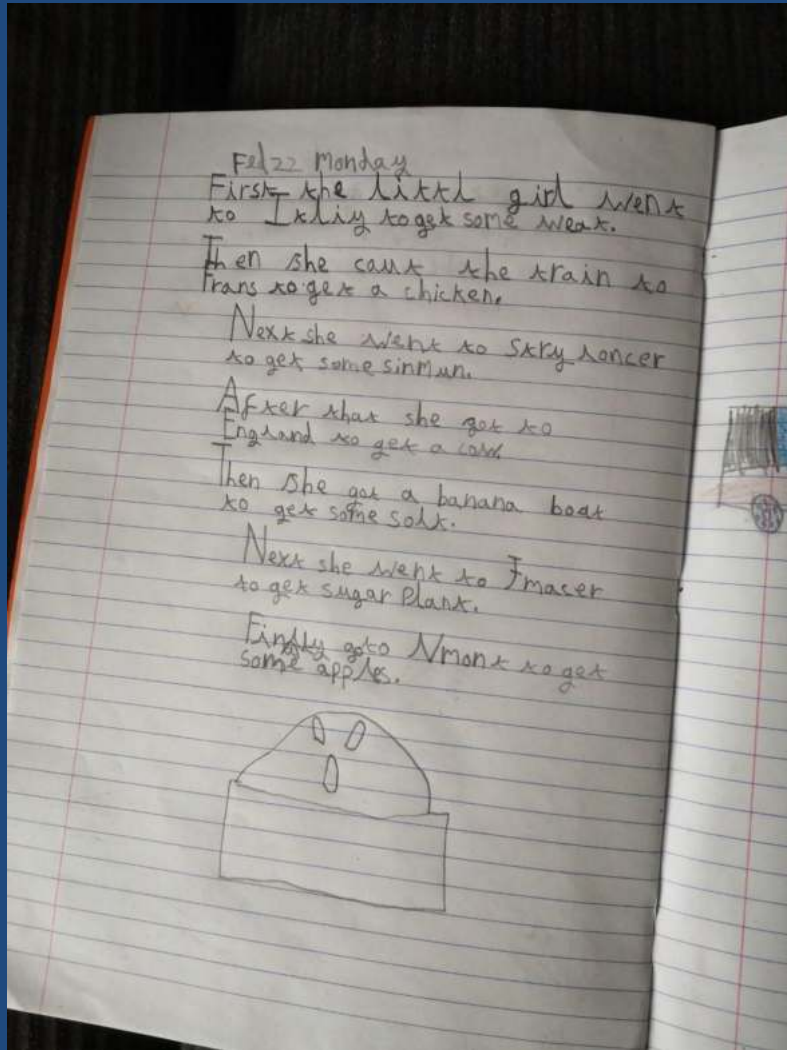 Fed 22 Monday
First the littl girl went
to Itliy to get some weat.
Then she caut the train to
Frans to get a chicken.
Next she went to Stry loncer
to get some sinmun.
After that she got to
England to get a cow.
Then she got a banana boat
to get some solt.
Next she went to Jmacer
to get sugar Plant.
Finlly goto Nmont to get
some apples.